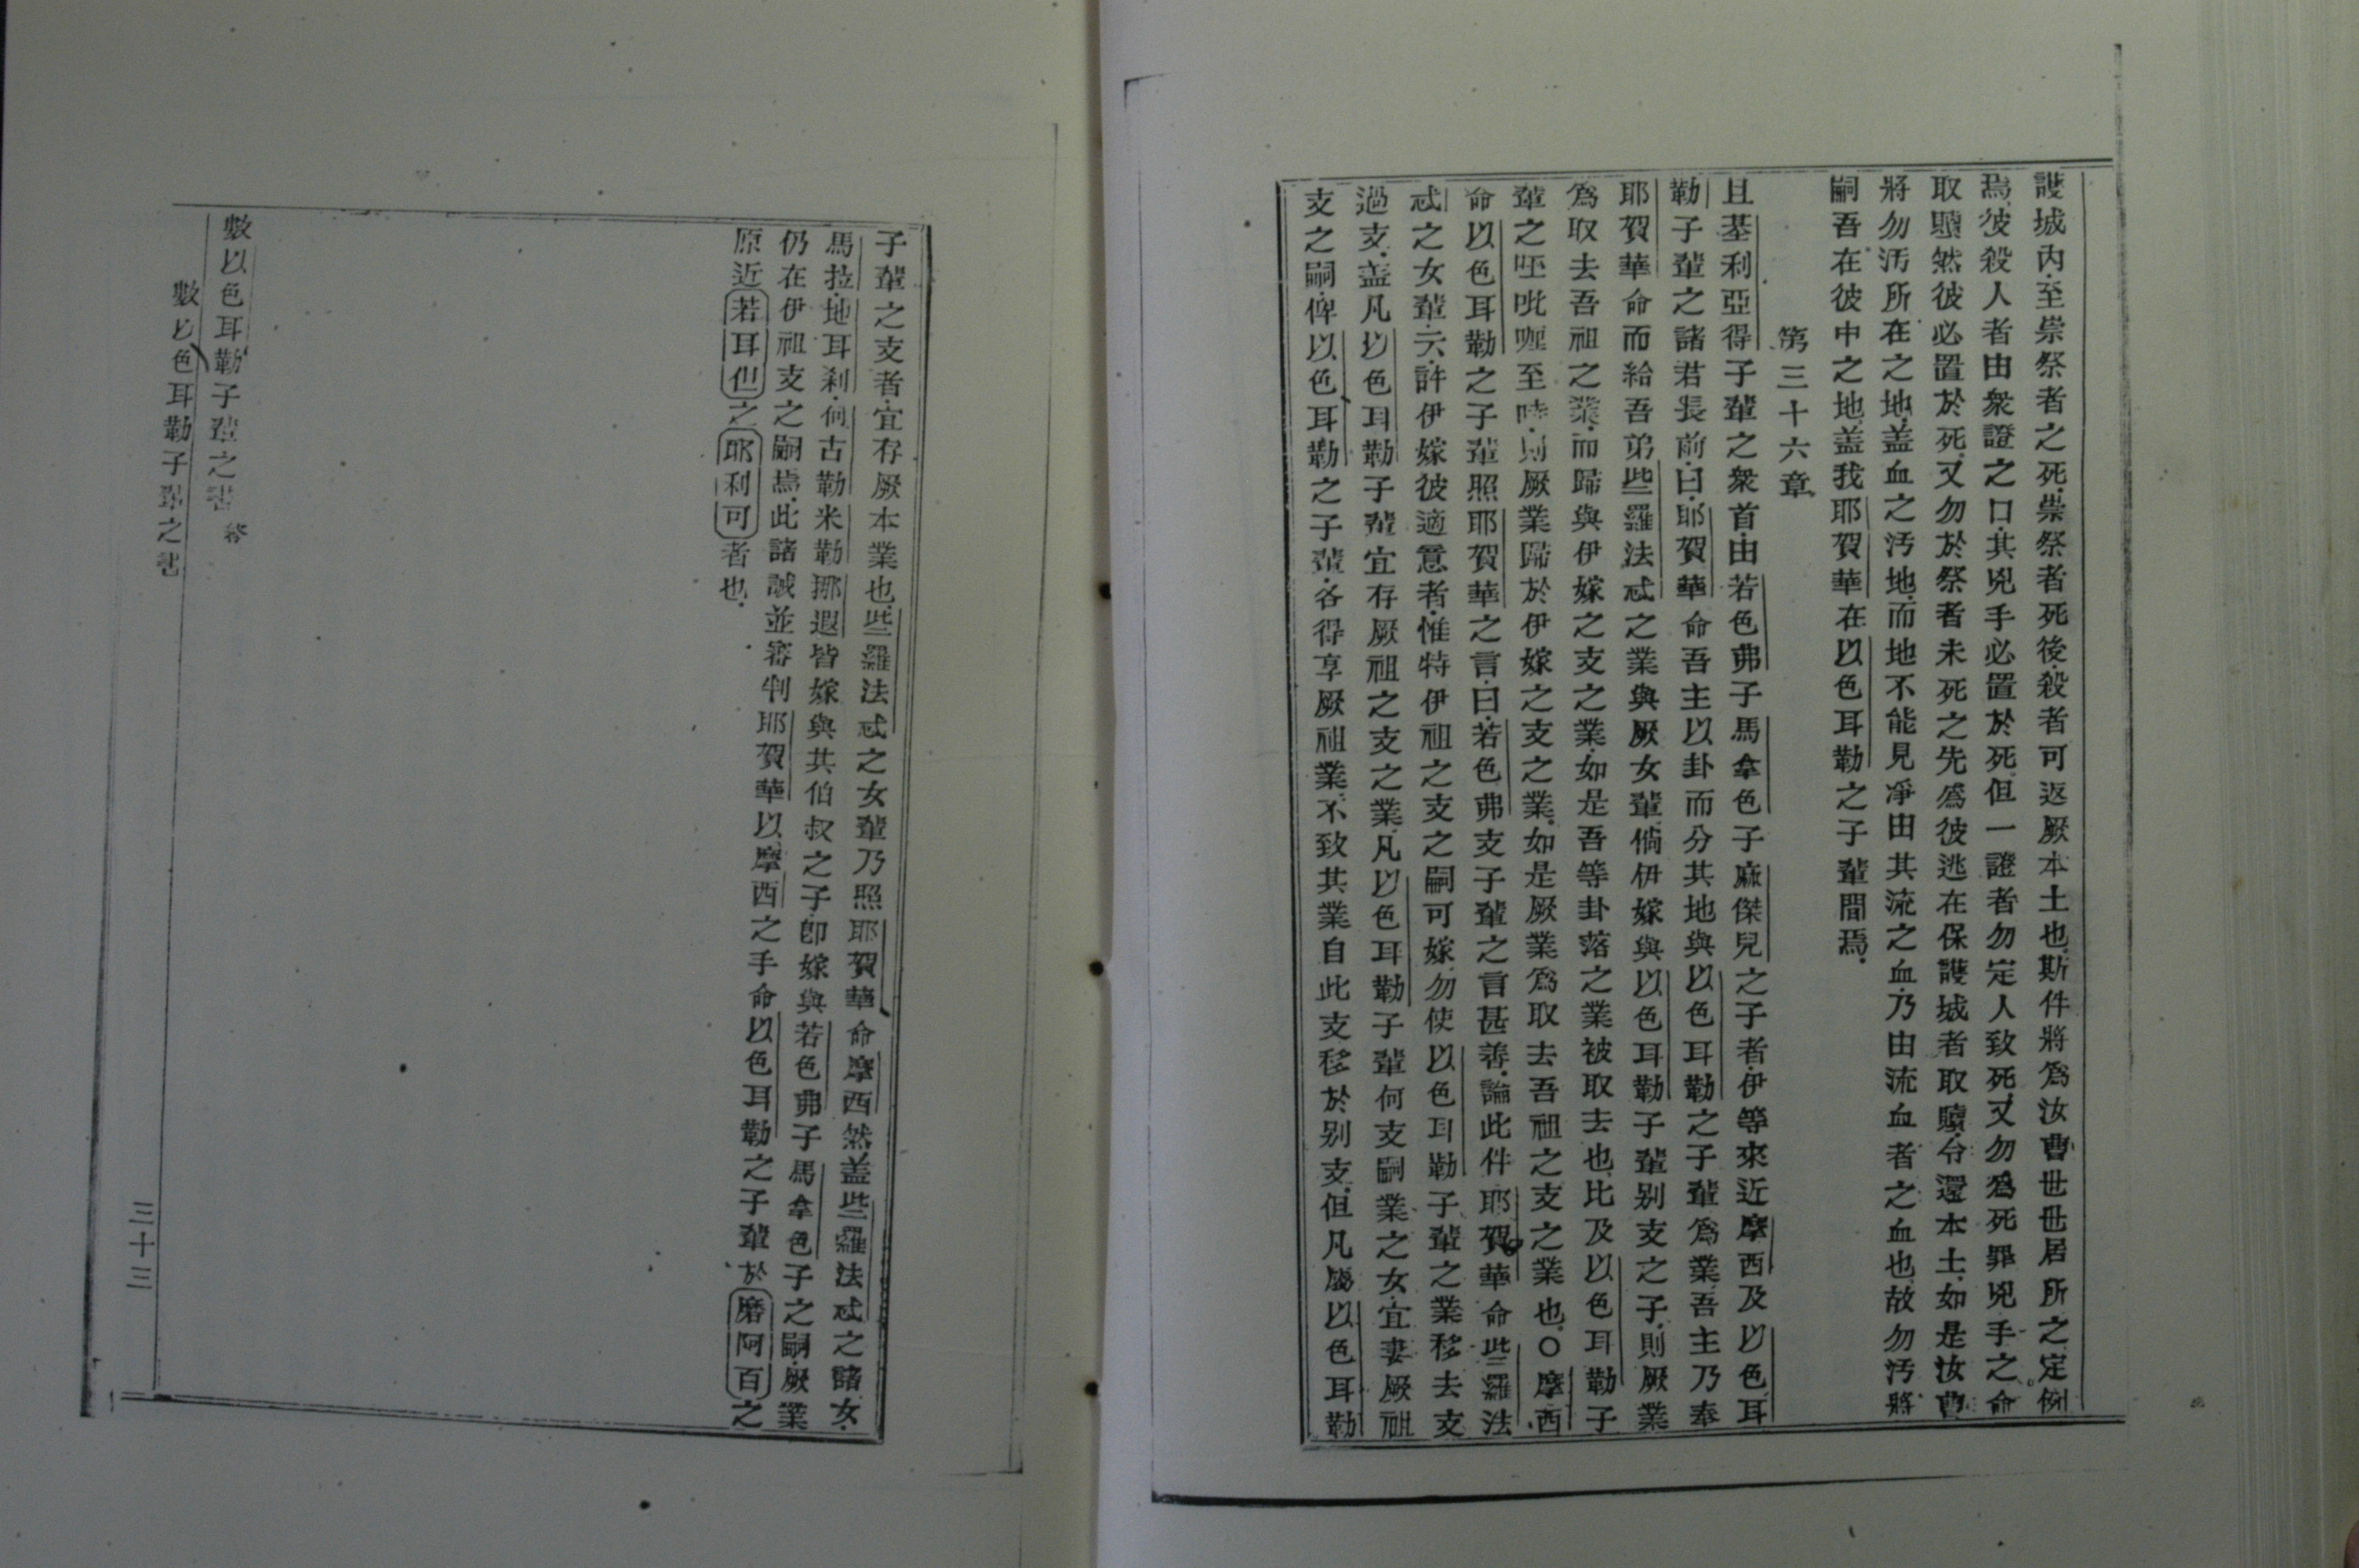 護城內至崇祭者之死祟祭者死後殺者可返厥本土也斯件將為汝曹世世居所之定例
焉彼殺人者由衆證之口其兇手必置於死但一證者勿定人致死又勿爲死罪兇手之命
取贖然彼必置於死又勿於祭者未死之先爲彼逃在保護城者取贖令還本土如是汝曹
將勿汚所在之地盖血之汚地而地不能見凈由其流之血乃由流血者之血也故勿汚將
嗣吾在彼中之地盖我耶賀華在以色耳勒之子輩間焉
第三十六章
且基利亞得子輩之衆首由若色弗子馬拿色子麻傑兒之子者伊等來近摩西及以色耳
勒子輩之諸君長前曰耶賀華命吾主以卦而分其地與以色耳勒之子輩爲業吾主乃奉
耶賀華命而給吾弟些羅法忒之業與厥女輩倘伊嫁與以色耳勒子輩别支之子則厥業
爲取去吾祖之業而歸與伊嫁之支之業如是吾等卦落之業被取去也比及以色耳勒子
輩之𠵇吡㘔至時則厥業歸於伊嫁之支之業如是厥業爲取去吾祖之支之業也○摩西
命以色耳勒之子輩照耶賀華之言曰若色弗支子輩之言甚善論此件耶賀華命些羅法
忒之女輩云許伊嫁彼適意者惟特伊祖之支之嗣可嫁勿使以色耳勒子輩之業移去支
過支盖凡以色耳勒子輩宜存厥祖之支之業凡以色耳勒子輩何支嗣業之女宜妻厥祖
支之嗣俾以色耳勒之子輩各得享厥祖業不致其業自此支移於别支但凡屬以色耳勒
子輩之支者宜存厥本業也些羅法忒之女輩乃照耶賀華命摩西然盖些羅法忒之諸女
馬拉地耳剎何古勒米勒挪遐皆嫁與其伯叔之子卽嫁與若色弗子馬拿色子之嗣厥業
仍在伊祖支之嗣焉此諸誡並審判耶賀華以摩西之手命以色耳勒之子輩於磨阿百之
原近若耳但之耶利可者也
數以色耳勒子輩之書 終
數以色耳勒子輩之書
三十三